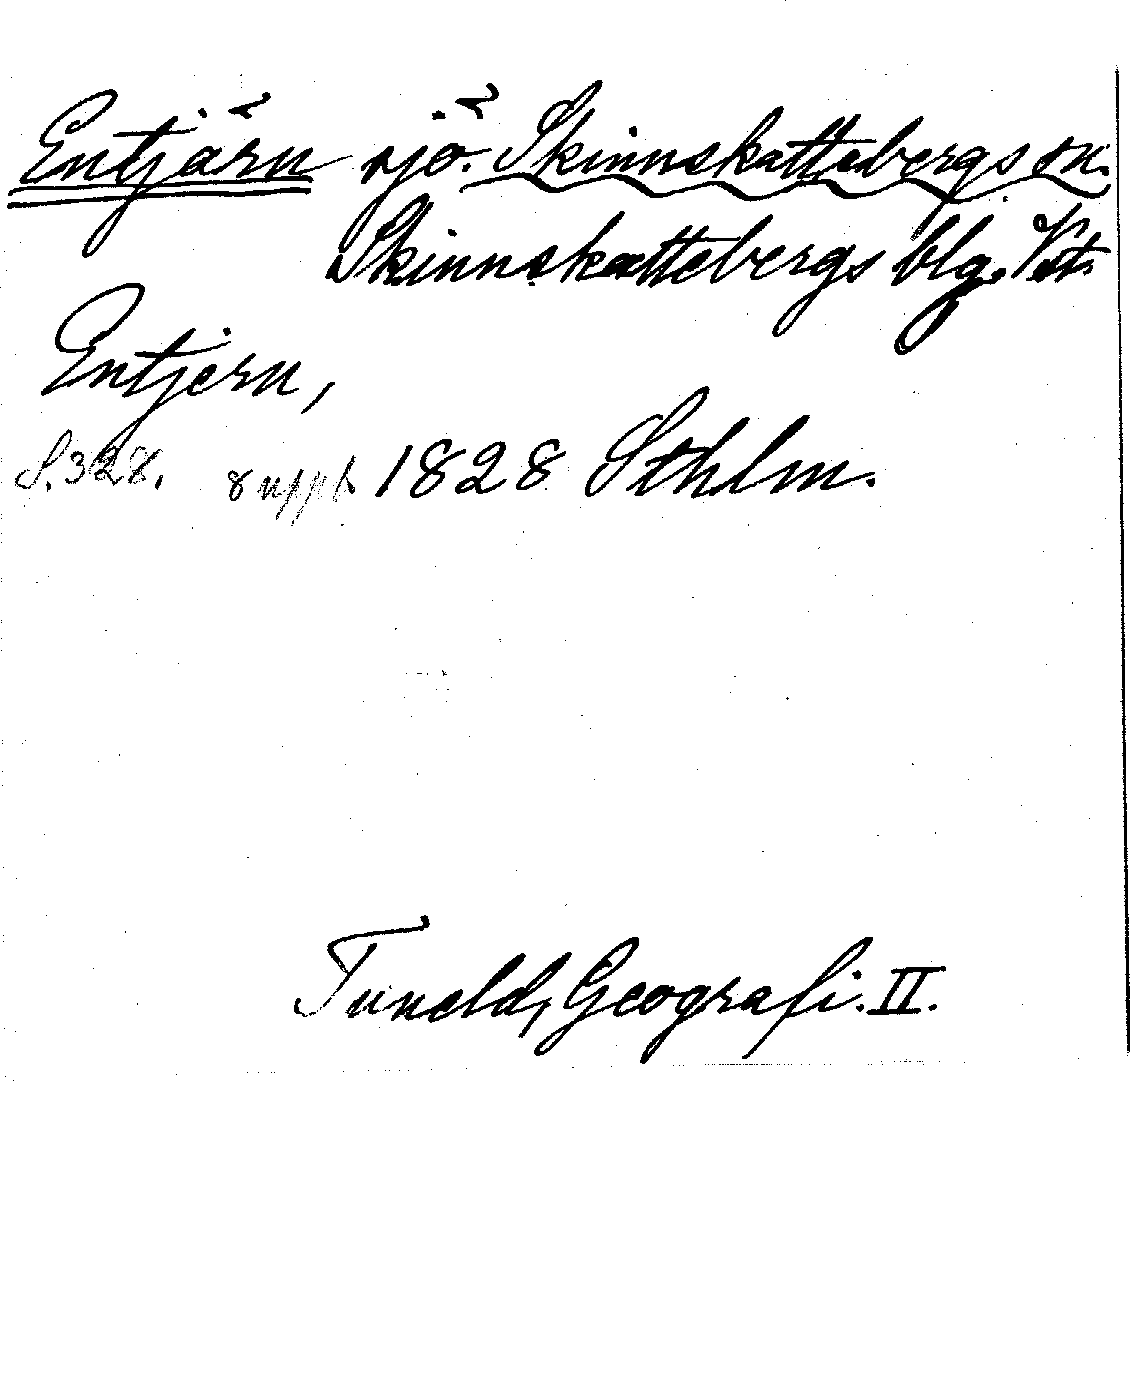 Entjärn sjö. Skinnskattebergs sn.
Skinnskattebergs blg. Vstr
Entjern,
S. 328. 8 uppl. 1828 Sthlm.
Tuneld, Geografi. II.